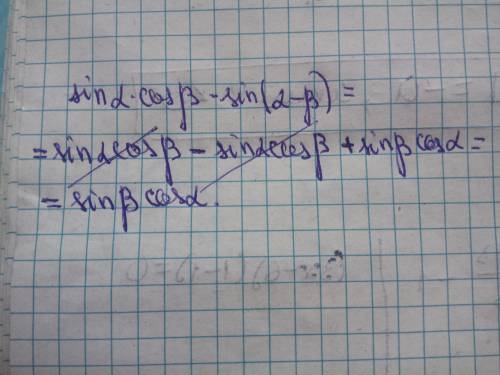 sinα·cosβ - sin(α-β) =
= sinαcosβ - sinαcosβ + sinβcosα =
= sinβcosα.